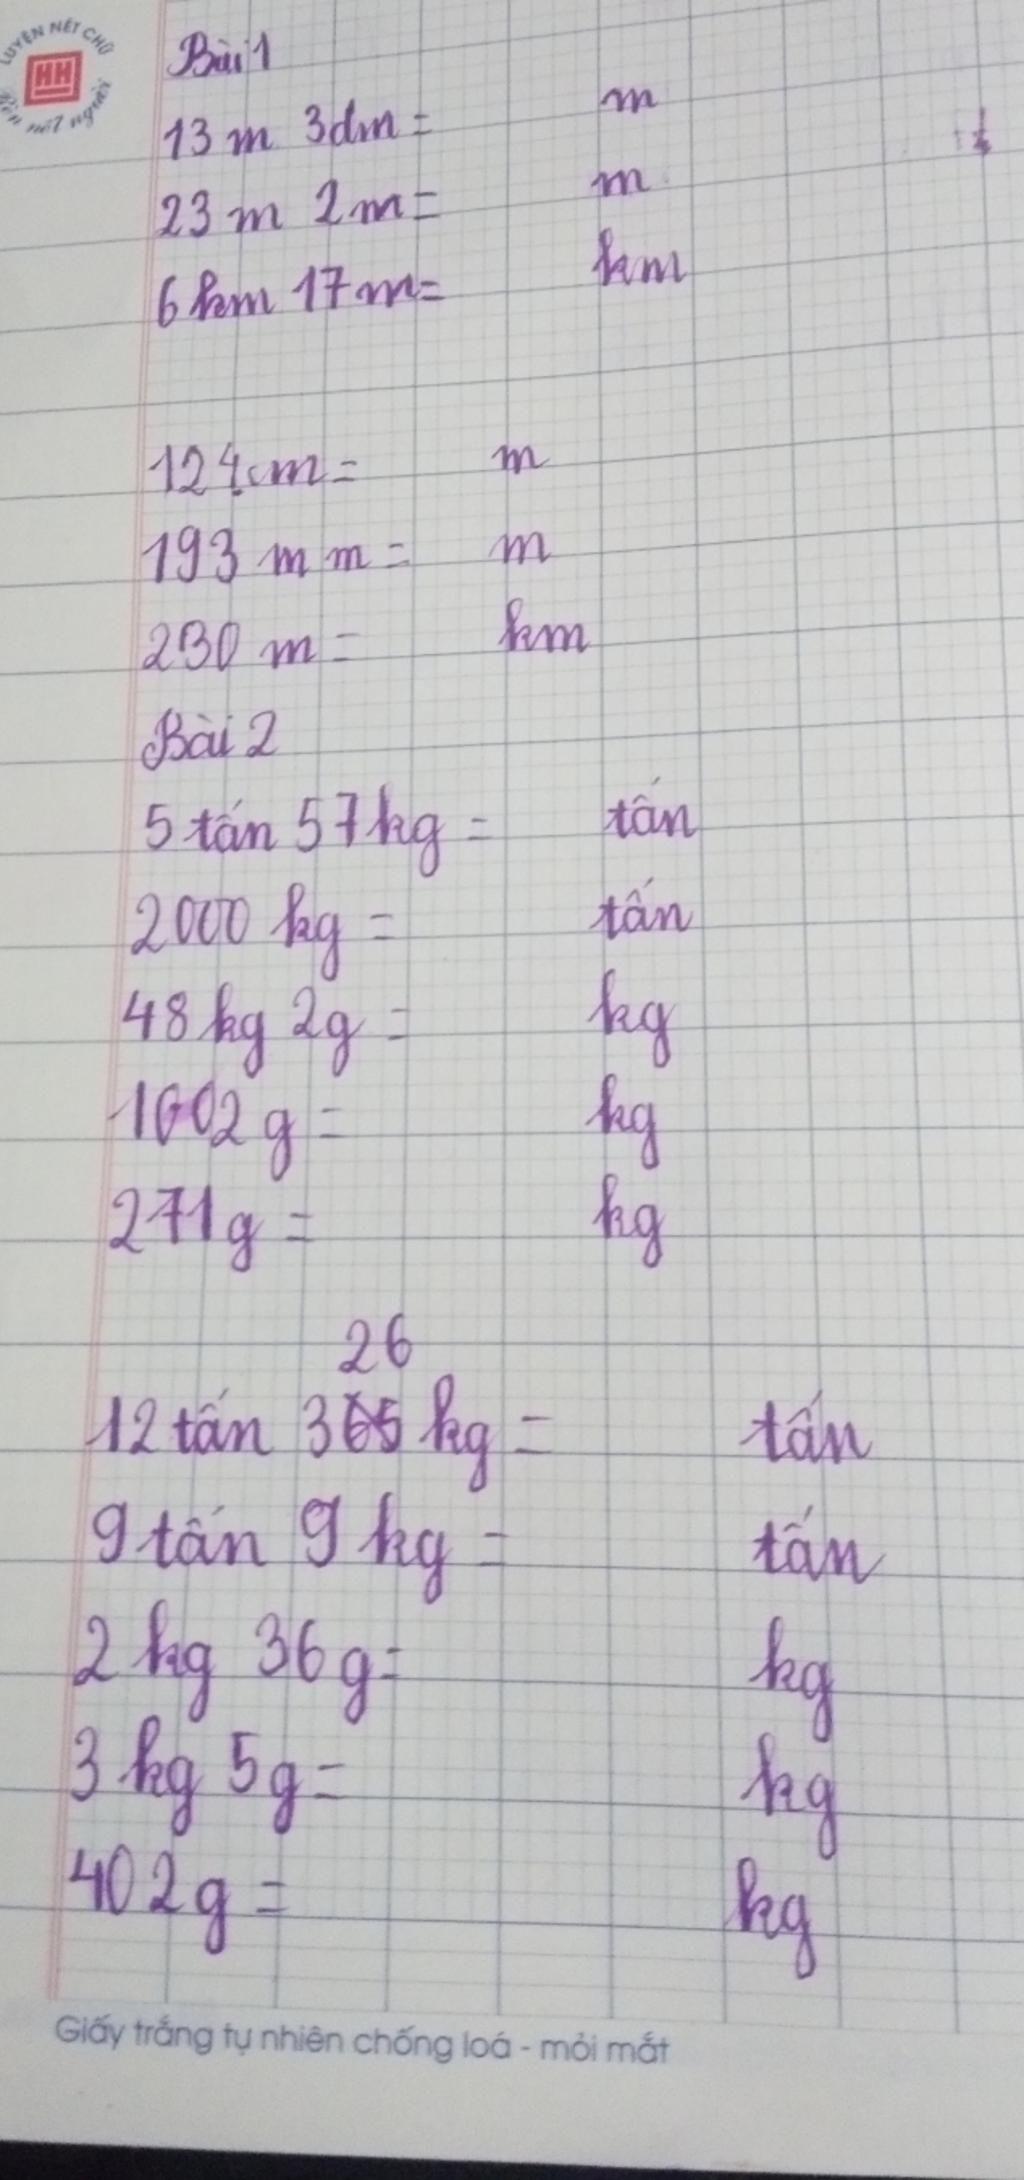 LUYỆN NÉT CHỮ
HH
Rèn nết người
Bài 1
13 m 3dm = m
23 m 2m = m
6 km 17 m = km
124cm = m
193 m m = m
230 m = km
Bài 2
5 tấn 57 kg = tấn
2000 kg = tấn
48 kg 2g = kg
1002 g = kg
271g = kg
26
12 tấn 365 kg = tấn
9 tấn 9 kg = tấn
2 kg 36 g = kg
3 kg 5g = kg
402g = kg
Giấy trắng tự nhiên chống loá - mỏi mắt